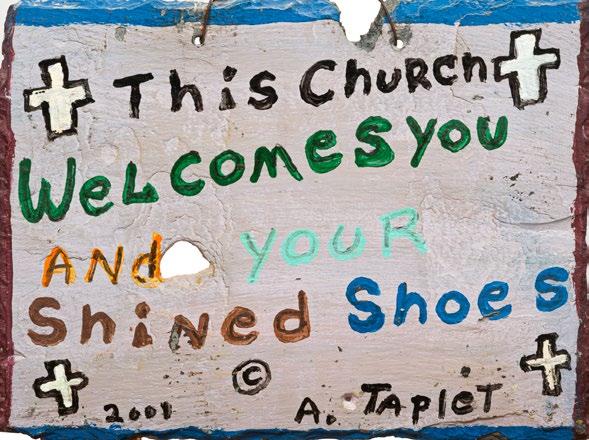 This CHURCh
WeLcomes you
ANd YOUR
ShiNed Shoes
©
2001 A. TAPLET